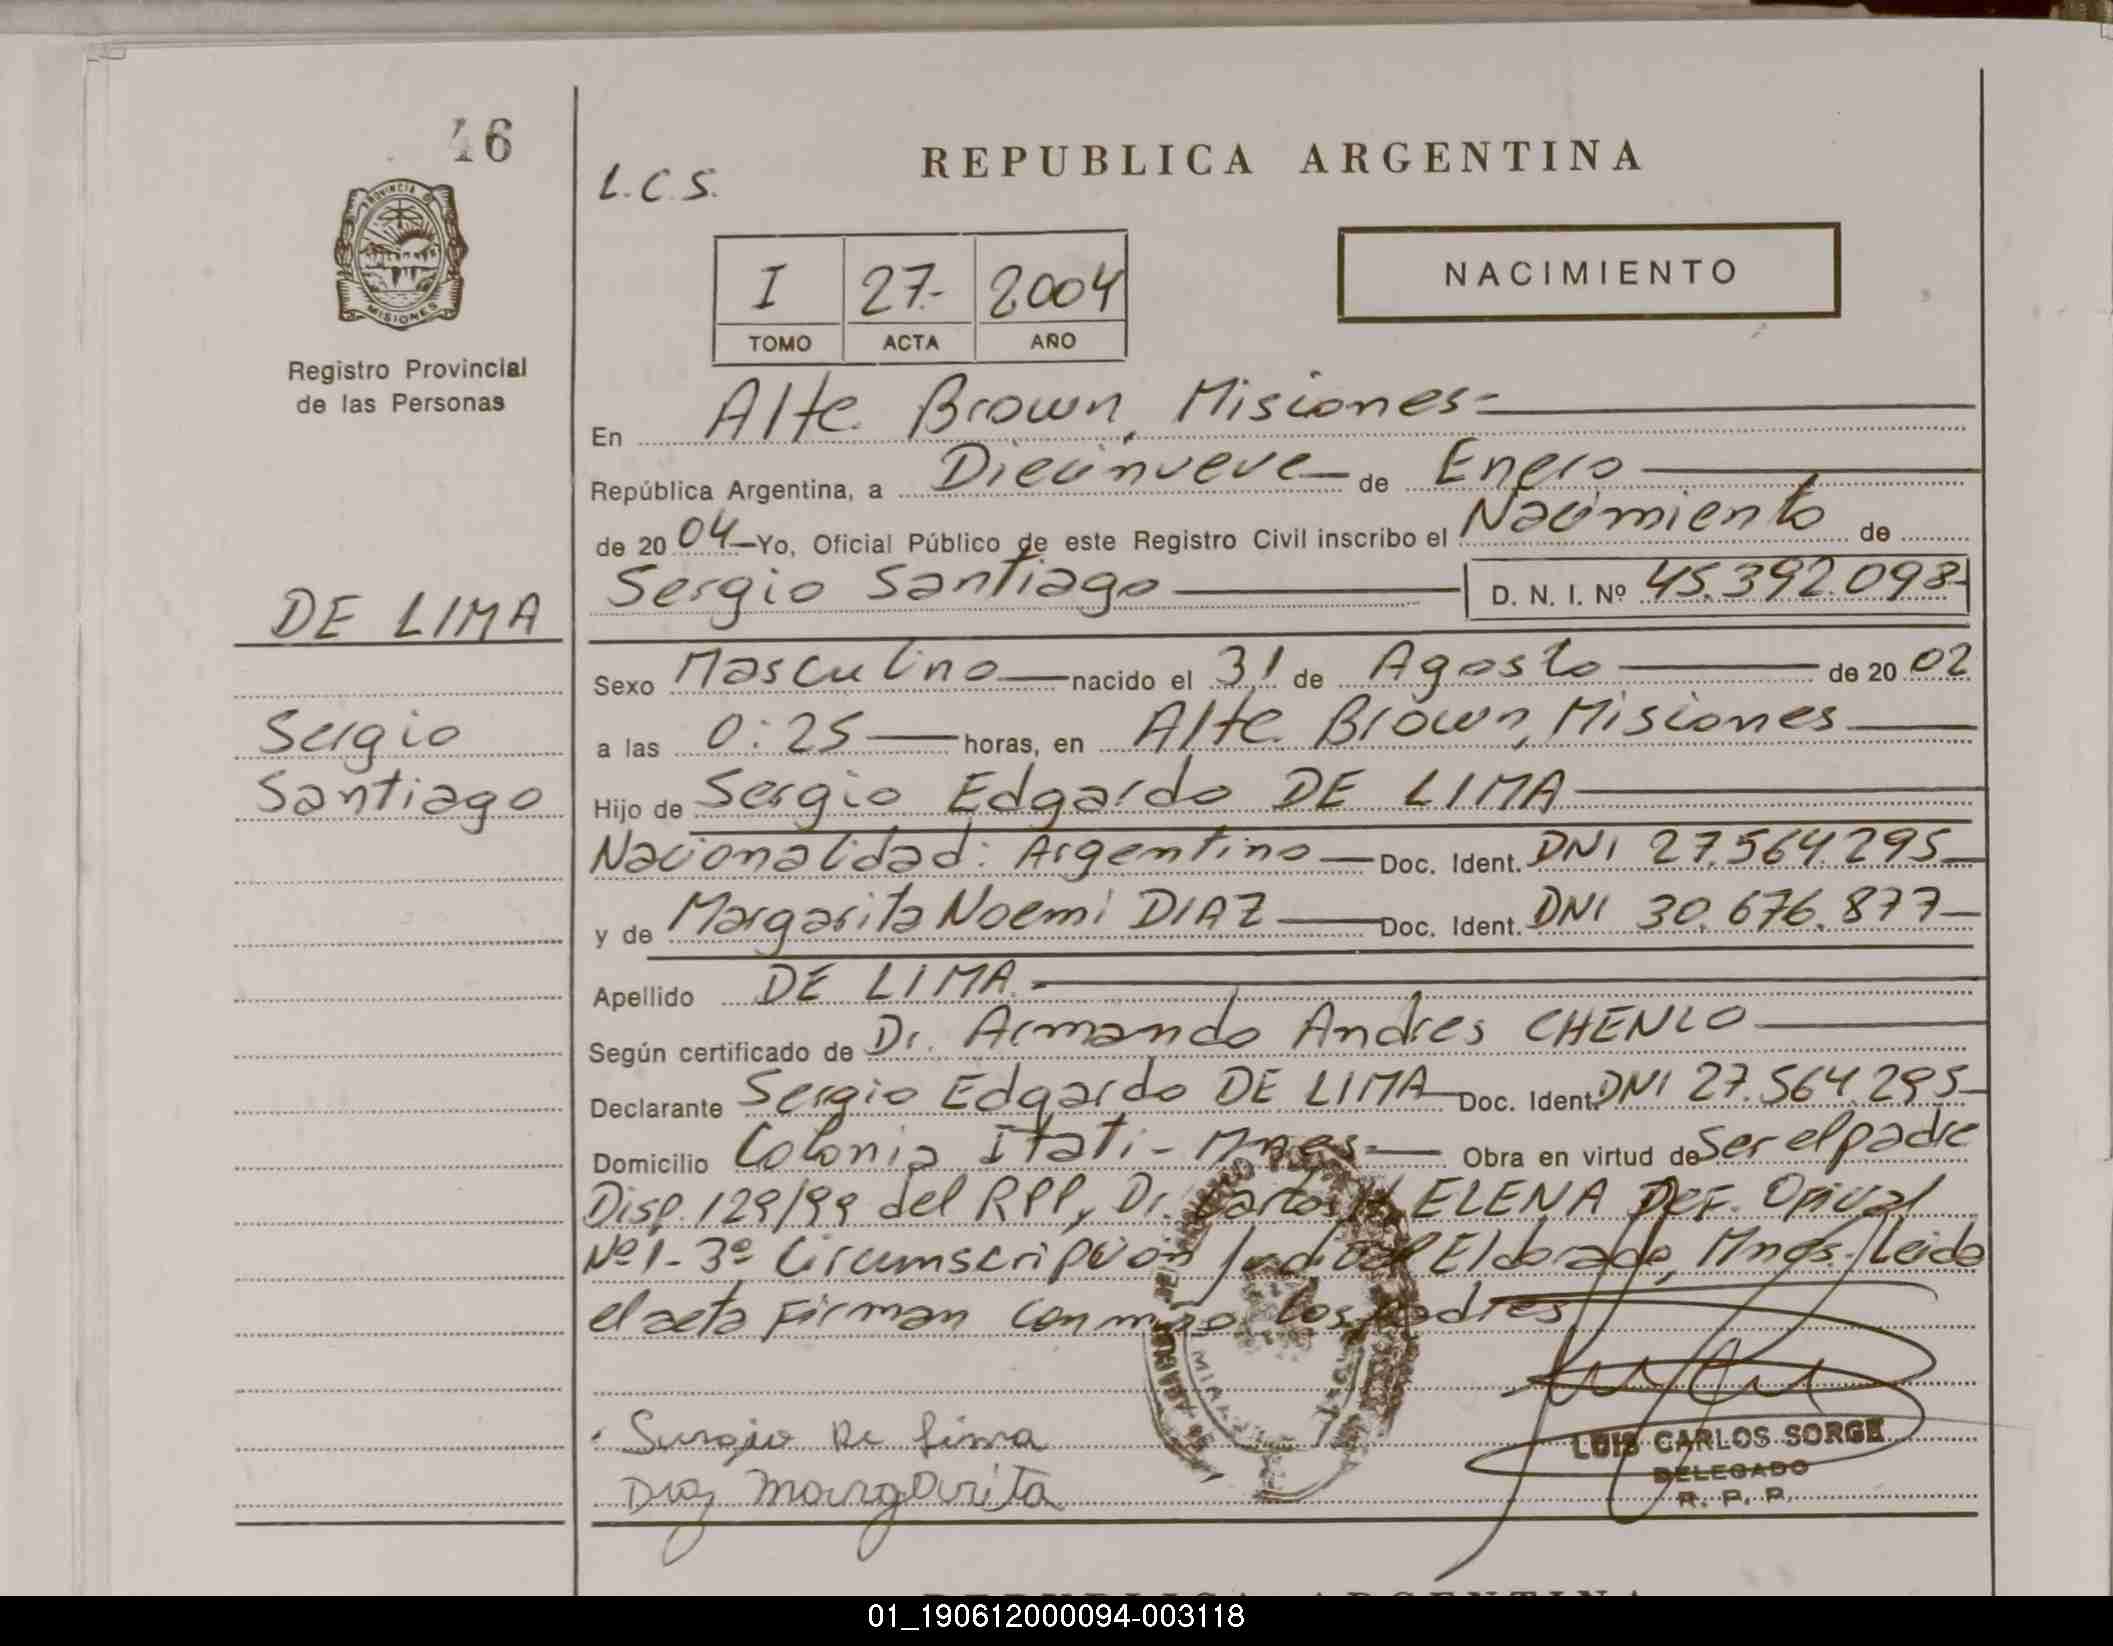 46
L.C.S.
REPUBLICA ARGENTINA
PROVINCIA DE
MISIONES
I 27- 2004
TOMO ACTA AÑO
NACIMIENTO
Registro Provincial
de las Personas
En Alte. Brown, Misiones-
República Argentina, a Diecinueve de Enero
de 2004 Yo, Oficial Público de este Registro Civil inscribo el Nacimiento de
Sergio Santiago D. N. I. Nº 45.392.098-
DE LIMA
Sexo Masculino nacido el 31 de Agosto de 2002
Sergio
a las 0:25 horas, en Alte. Brown, Misiones
Santiago
Hijo de Sergio Edgardo DE LIMA
Nacionalidad: Argentino Doc. Ident. DNI 27.564.295
y de Margarita Noemi DIAZ Doc. Ident. DNI 30.676.877
Apellido DE LIMA.-
Según certificado de Dr. Armando Andres CHENLO
Declarante Sergio Edgardo DE LIMA Doc. Ident. DNI 27.564.295
Domicilio Colonia Itati - Mnes- Obra en virtud de Ser el padre
Disp. 129/99 del RPP, Dr. Carlos ELENA DEF. Oficial
Nº 1 - 3º Circunscripcion Judicial Eldorado, Mnes. Leida
el acta Firman conmigo los padres
Sergio De Lima
Diaz Margarita
LUIS CARLOS SORGE
DELEGADO
R. P. P.
REPUBLICA ARGENTINA
01_190612000094-003118